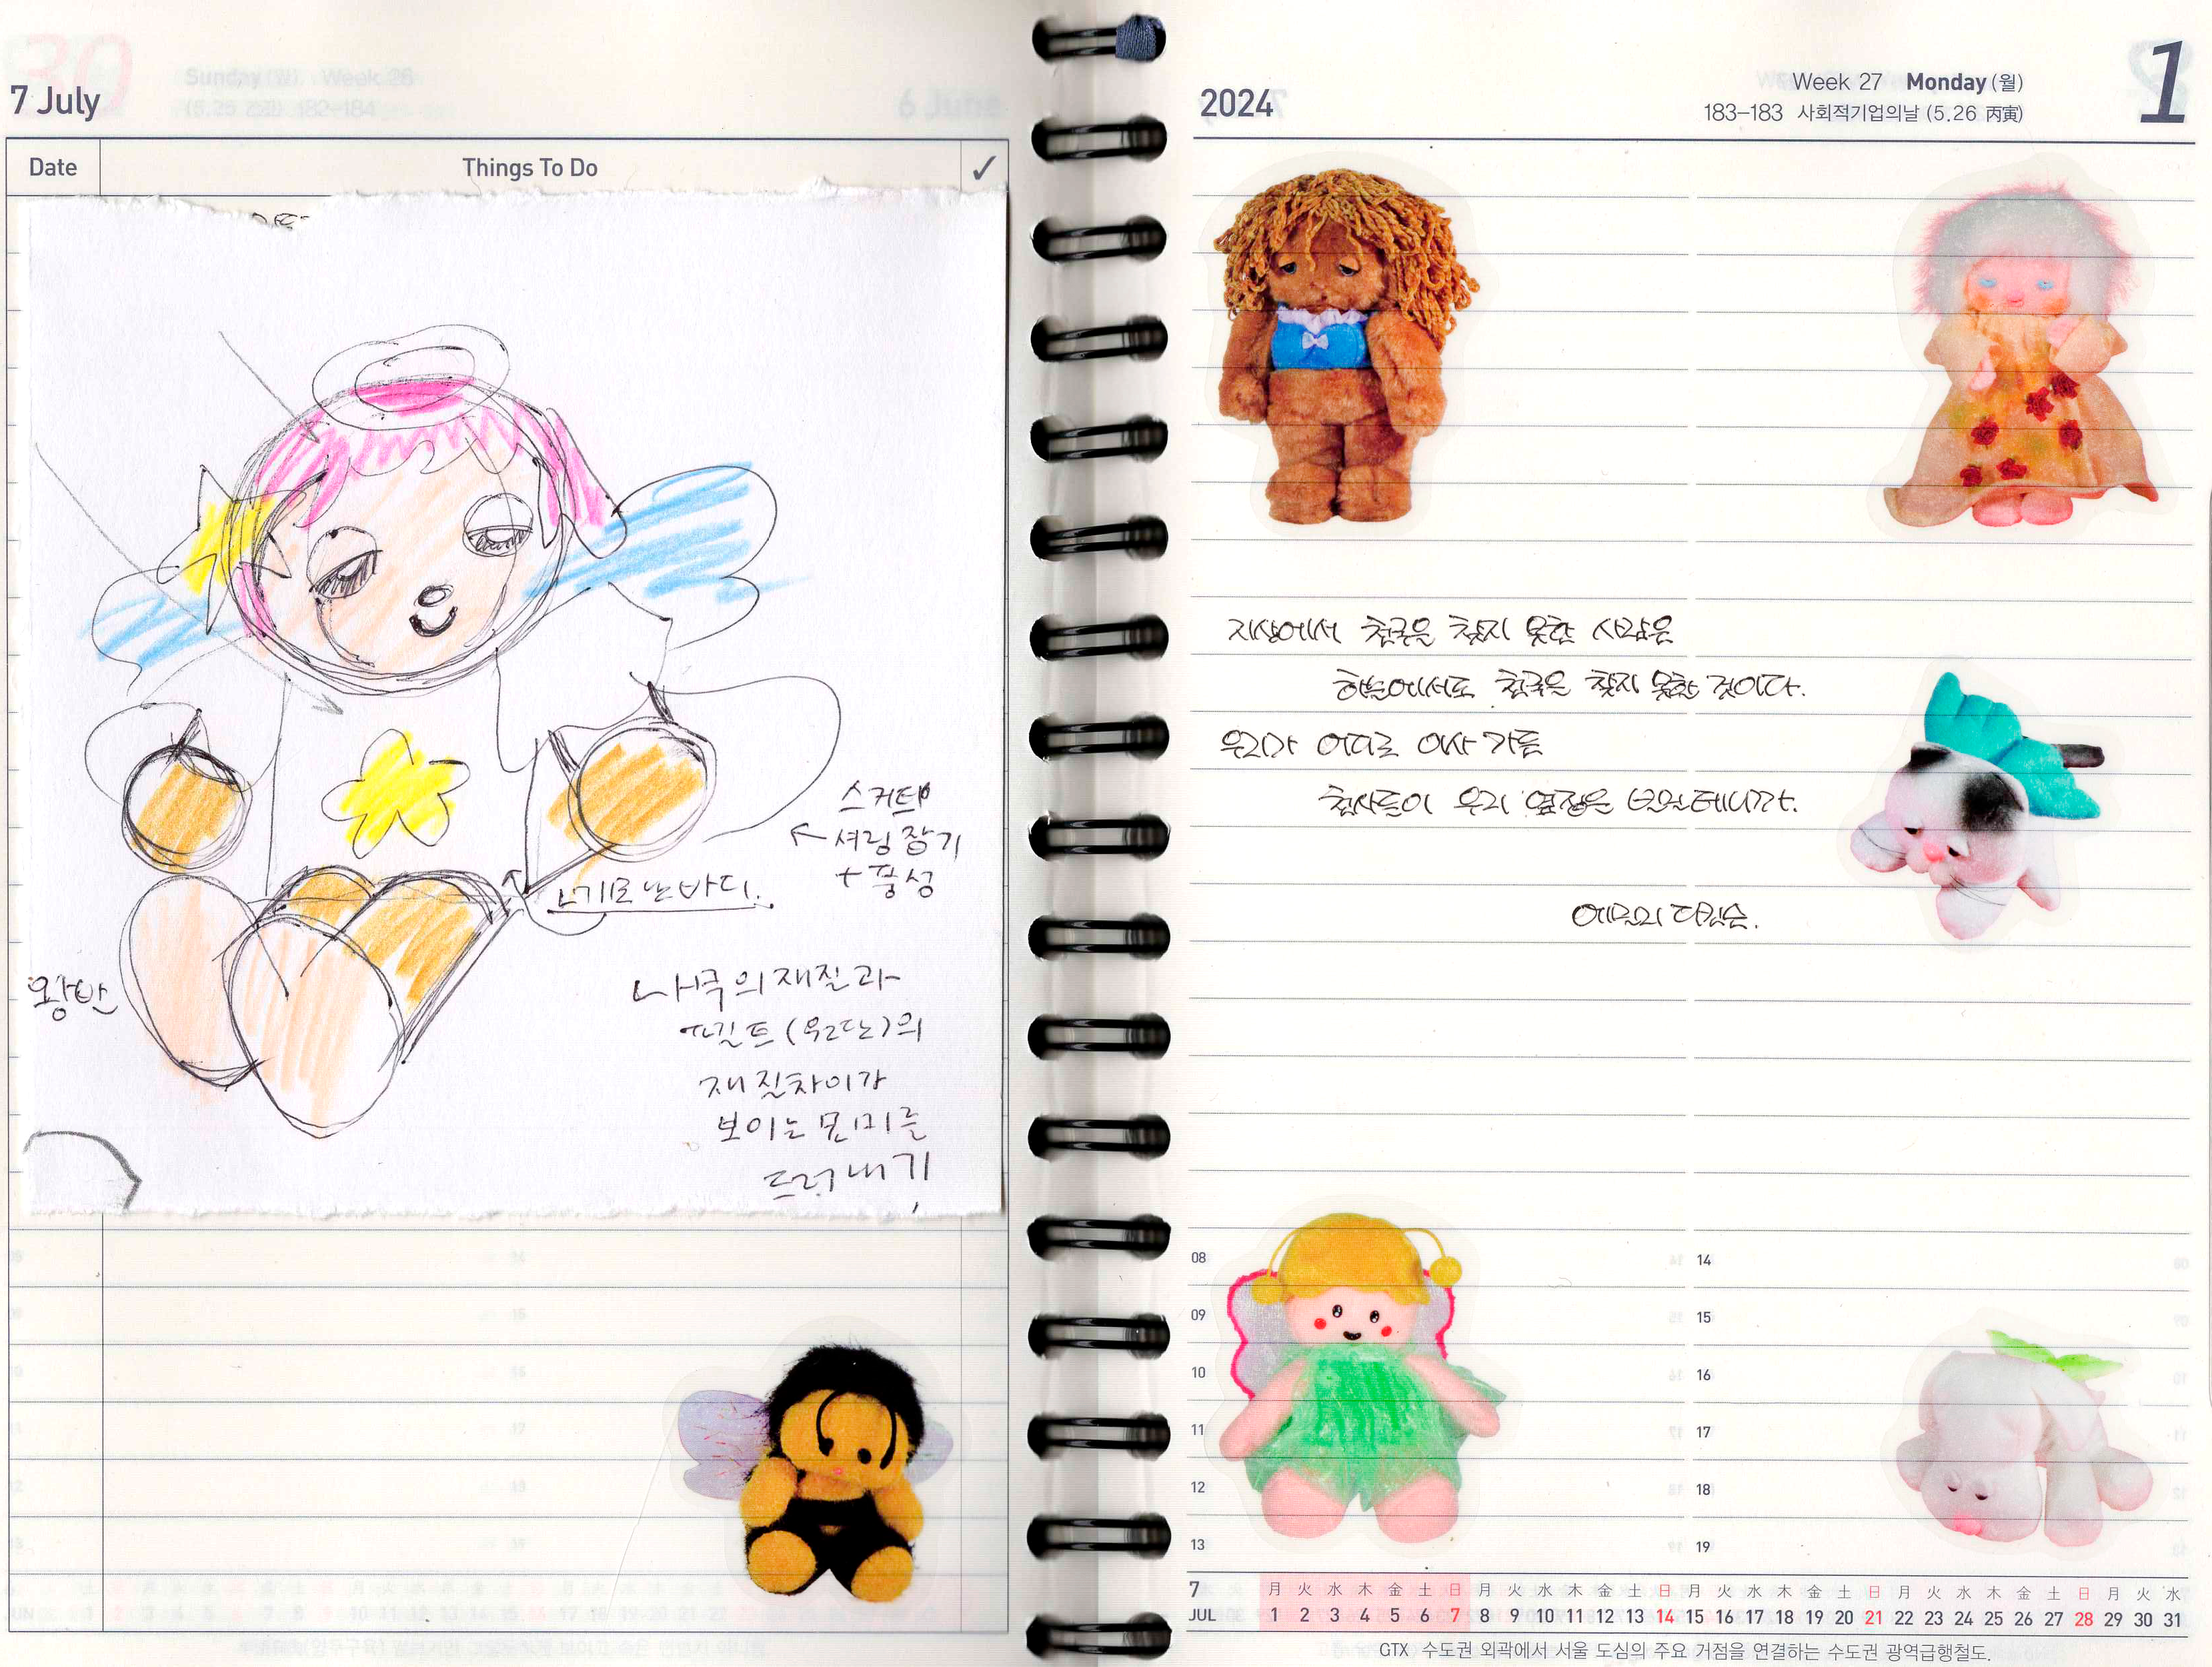 7 July
Date Things To Do ✓
스커트
← 셔링 잡기
+ 풍성
기모 난 바디.
왕발
나쿠의 재질과
(우리단)의
재질차이가
보이는 묘미를
드러내기
2024
Week 27 Monday (월)
183–183 사회적기업의날 (5.26 丙寅)
1
지상에서 천국을 찾지 못한 사람은
하늘에서도 천국을 찾지 못할 것이다.
우리가 어디로 이사 가든
천사들이 우리 옆집을 빌릴테니까.
에밀리 디킨슨.
08 14
09 15
10 16
11 17
12 18
13 19
7 月 火 水 木 金 土 日 月 火 水 木 金 土 日 月 火 水 木 金 土 日 月 火 水 木 金 土 日 月 火 水
JUL 1 2 3 4 5 6 7 8 9 10 11 12 13 14 15 16 17 18 19 20 21 22 23 24 25 26 27 28 29 30 31
GTX 수도권 외곽에서 서울 도심의 주요 거점을 연결하는 수도권 광역급행철도.